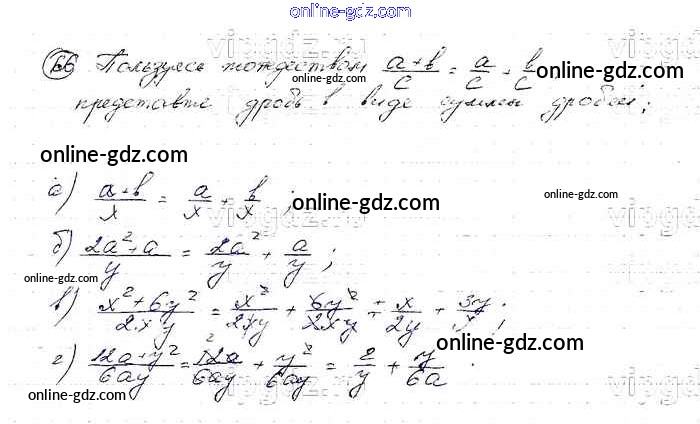 online-gdz.com
66 Пользуясь тождеством (a+b)/c = a/c + b/c online-gdz.com
представьте дробь в виде суммы дробей;
online-gdz.com
а) (a+b)/x = a/x + b/x ; online-gdz.com online-gdz.com
б) (2a²+a)/y = 2a²/y + a/y ;
online-gdz.com
в) (x²+6y²)/2xy = x²/2xy + 6y²/2xy = x/2y + 3y/x ;
online-gdz.com
г) (12a+y²)/6ay = 12a/6ay + y²/6ay = 2/y + y/6a .
online-gdz.com
online-gdz.com